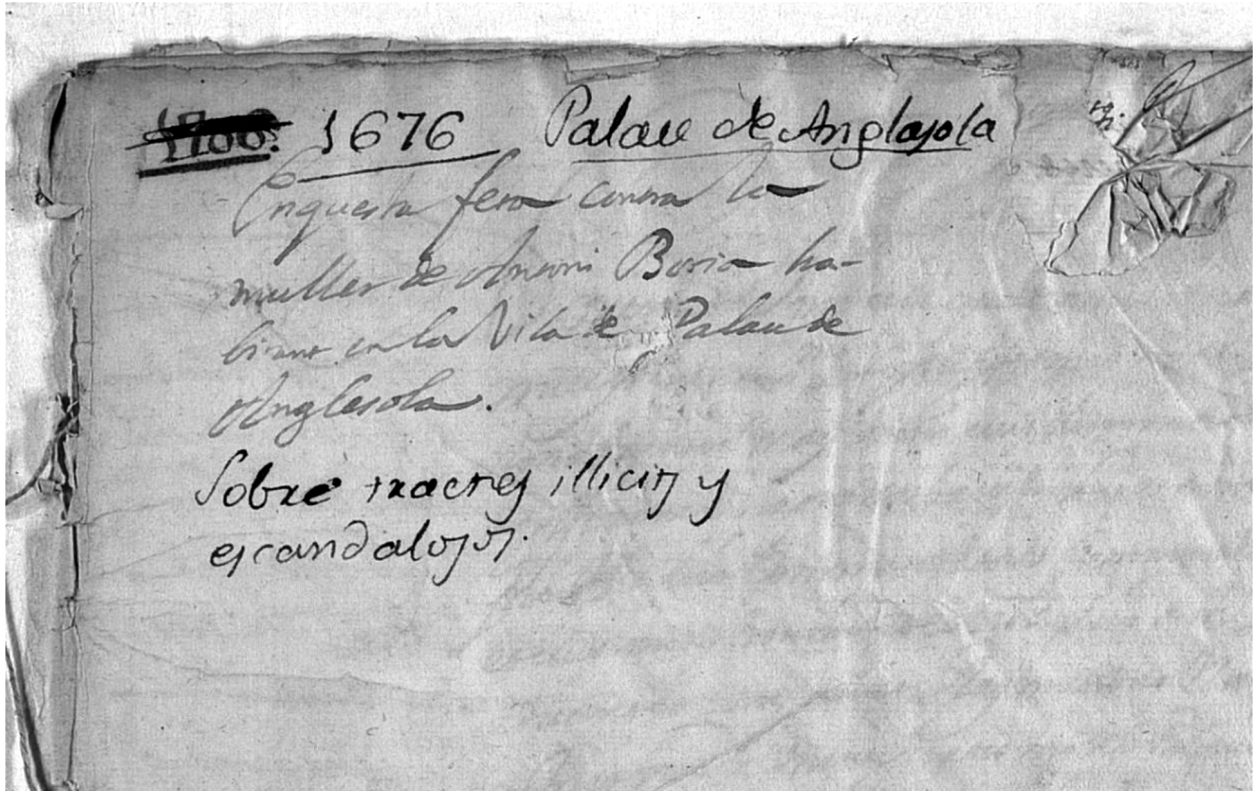 1700. 1676 Palau de Anglasola
Enquesta feta contra la
muller de Antoni Boria ha-
bitant en la Vila de Palau de
Anglesola.
Sobre tractes illicits y
escandalosos.